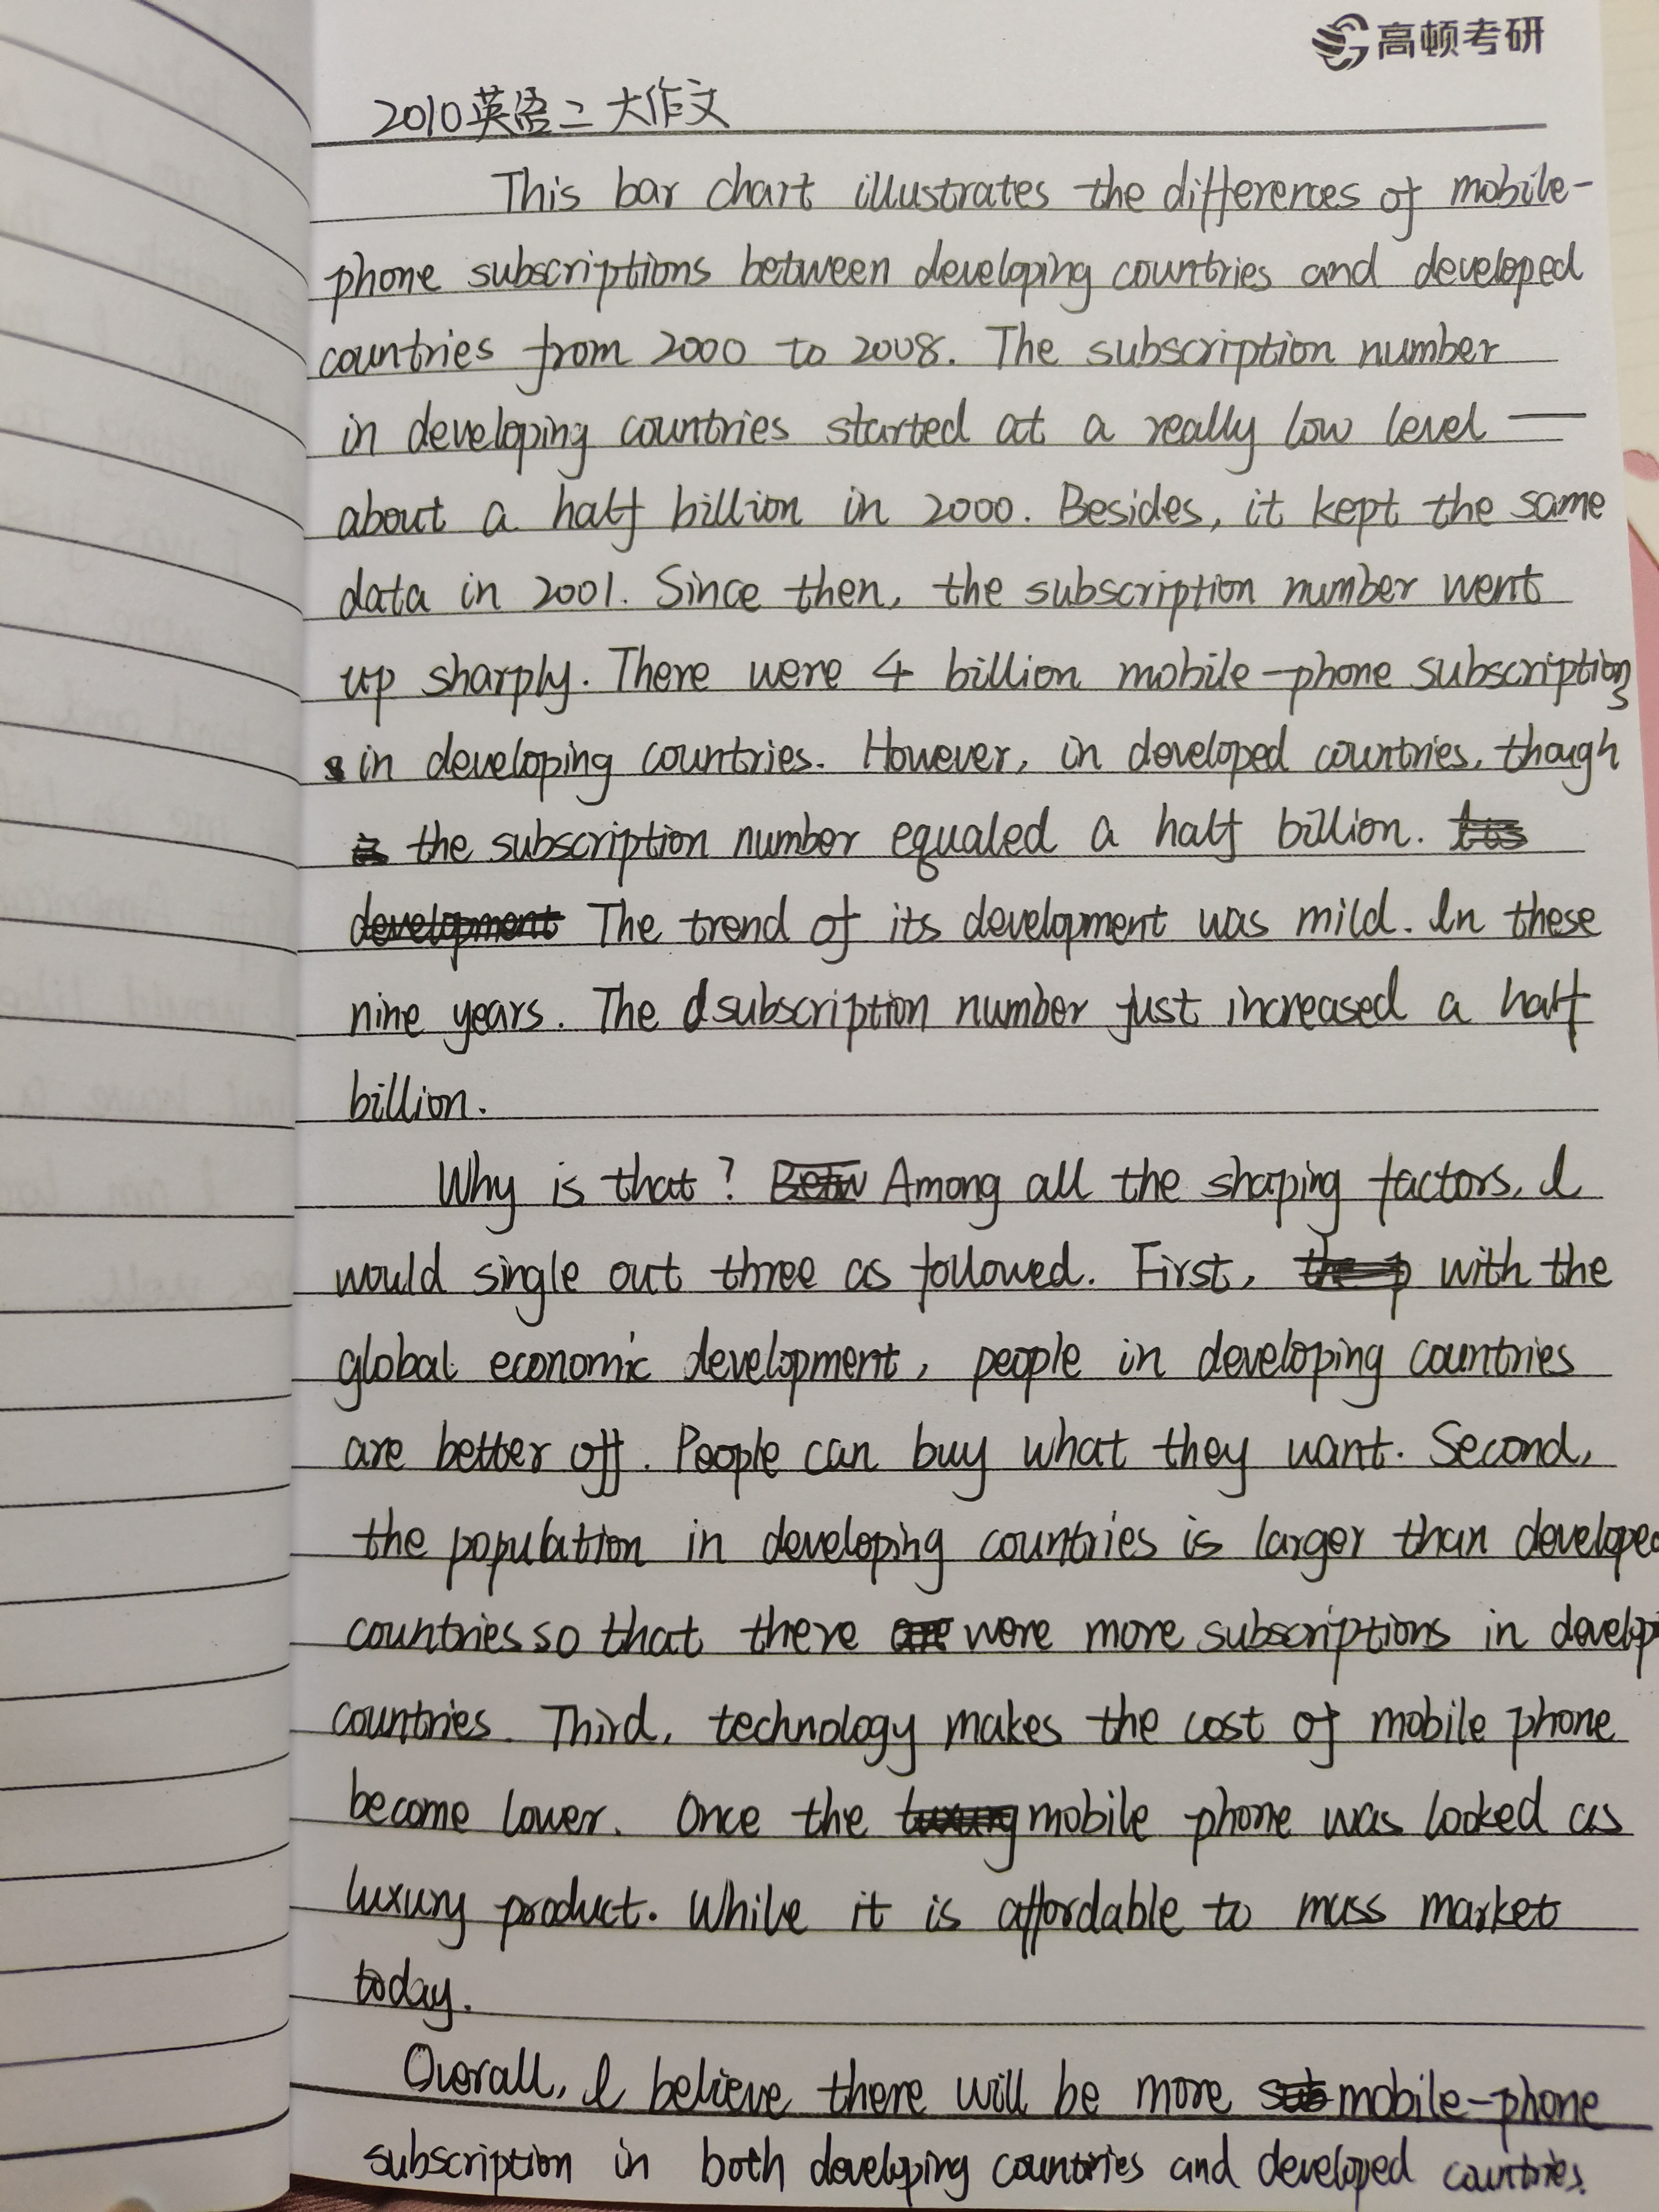 高顿考研
2010英语二 大作文
This bar chart illustrates the differences of mobile-
phone subscriptions between developing countries and developed
countries from 2000 to 2008. The subscription number
in developing countries started at a really low level —
about a half billion in 2000. Besides, it kept the same
data in 2001. Since then, the subscription number went
up sharply. There were 4 billion mobile-phone subscriptions
in developing countries. However, in developed countries, though
the subscription number equaled a half billion.
The trend of its development was mild. In these
nine years. The subscription number just increased a half
billion.
Why is that? Among all the shaping factors, I
would single out three as followed. First, with the
global economic development, people in developing countries
are better off. People can buy what they want. Second,
the population in developing countries is larger than developed
countries so that there were more subscriptions in develop
countries. Third, technology makes the cost of mobile phone
become lower. Once the mobile phone was looked as
luxury product. While it is affordable to mass market
today.
Overall, I believe there will be more mobile-phone
subscription in both developing countries and developed countries.